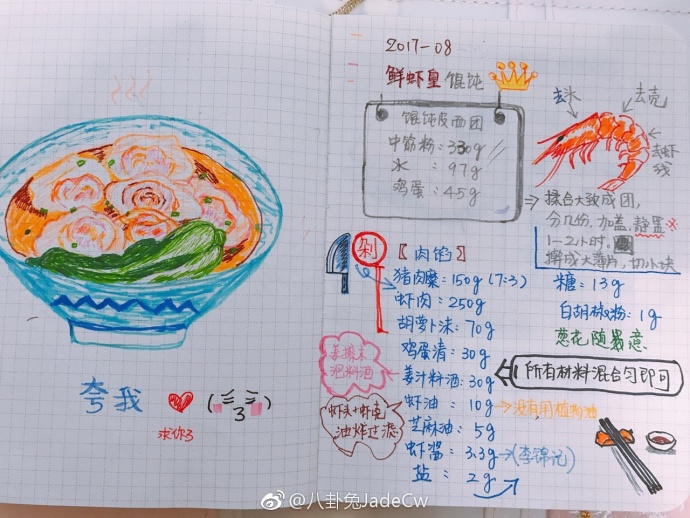 夸我
求你了
2017-08
鲜虾皇 馄饨
馄饨皮面团
中筋粉：330g
水：97g
鸡蛋：45g
去头
去壳
去虾线
揉合大致成团，
分几份，加盖，静置
1-2小时。
擀成大薄片，切小块
剁
【肉馅】
猪肉糜：150g (7:3)
虾肉：250g
胡萝卜沫：70g
鸡蛋清：30g
姜汁料酒：30g
虾油：10g→没有用植物油
芝麻油：5g
虾酱：3.3g→(李锦记)
盐：2g
糖：13g
白胡椒粉：1g
葱花随意
所有材料混合匀即可
姜擦末
泡料酒
虾头+虾壳
油炸过滤
@八卦兔JadeCw